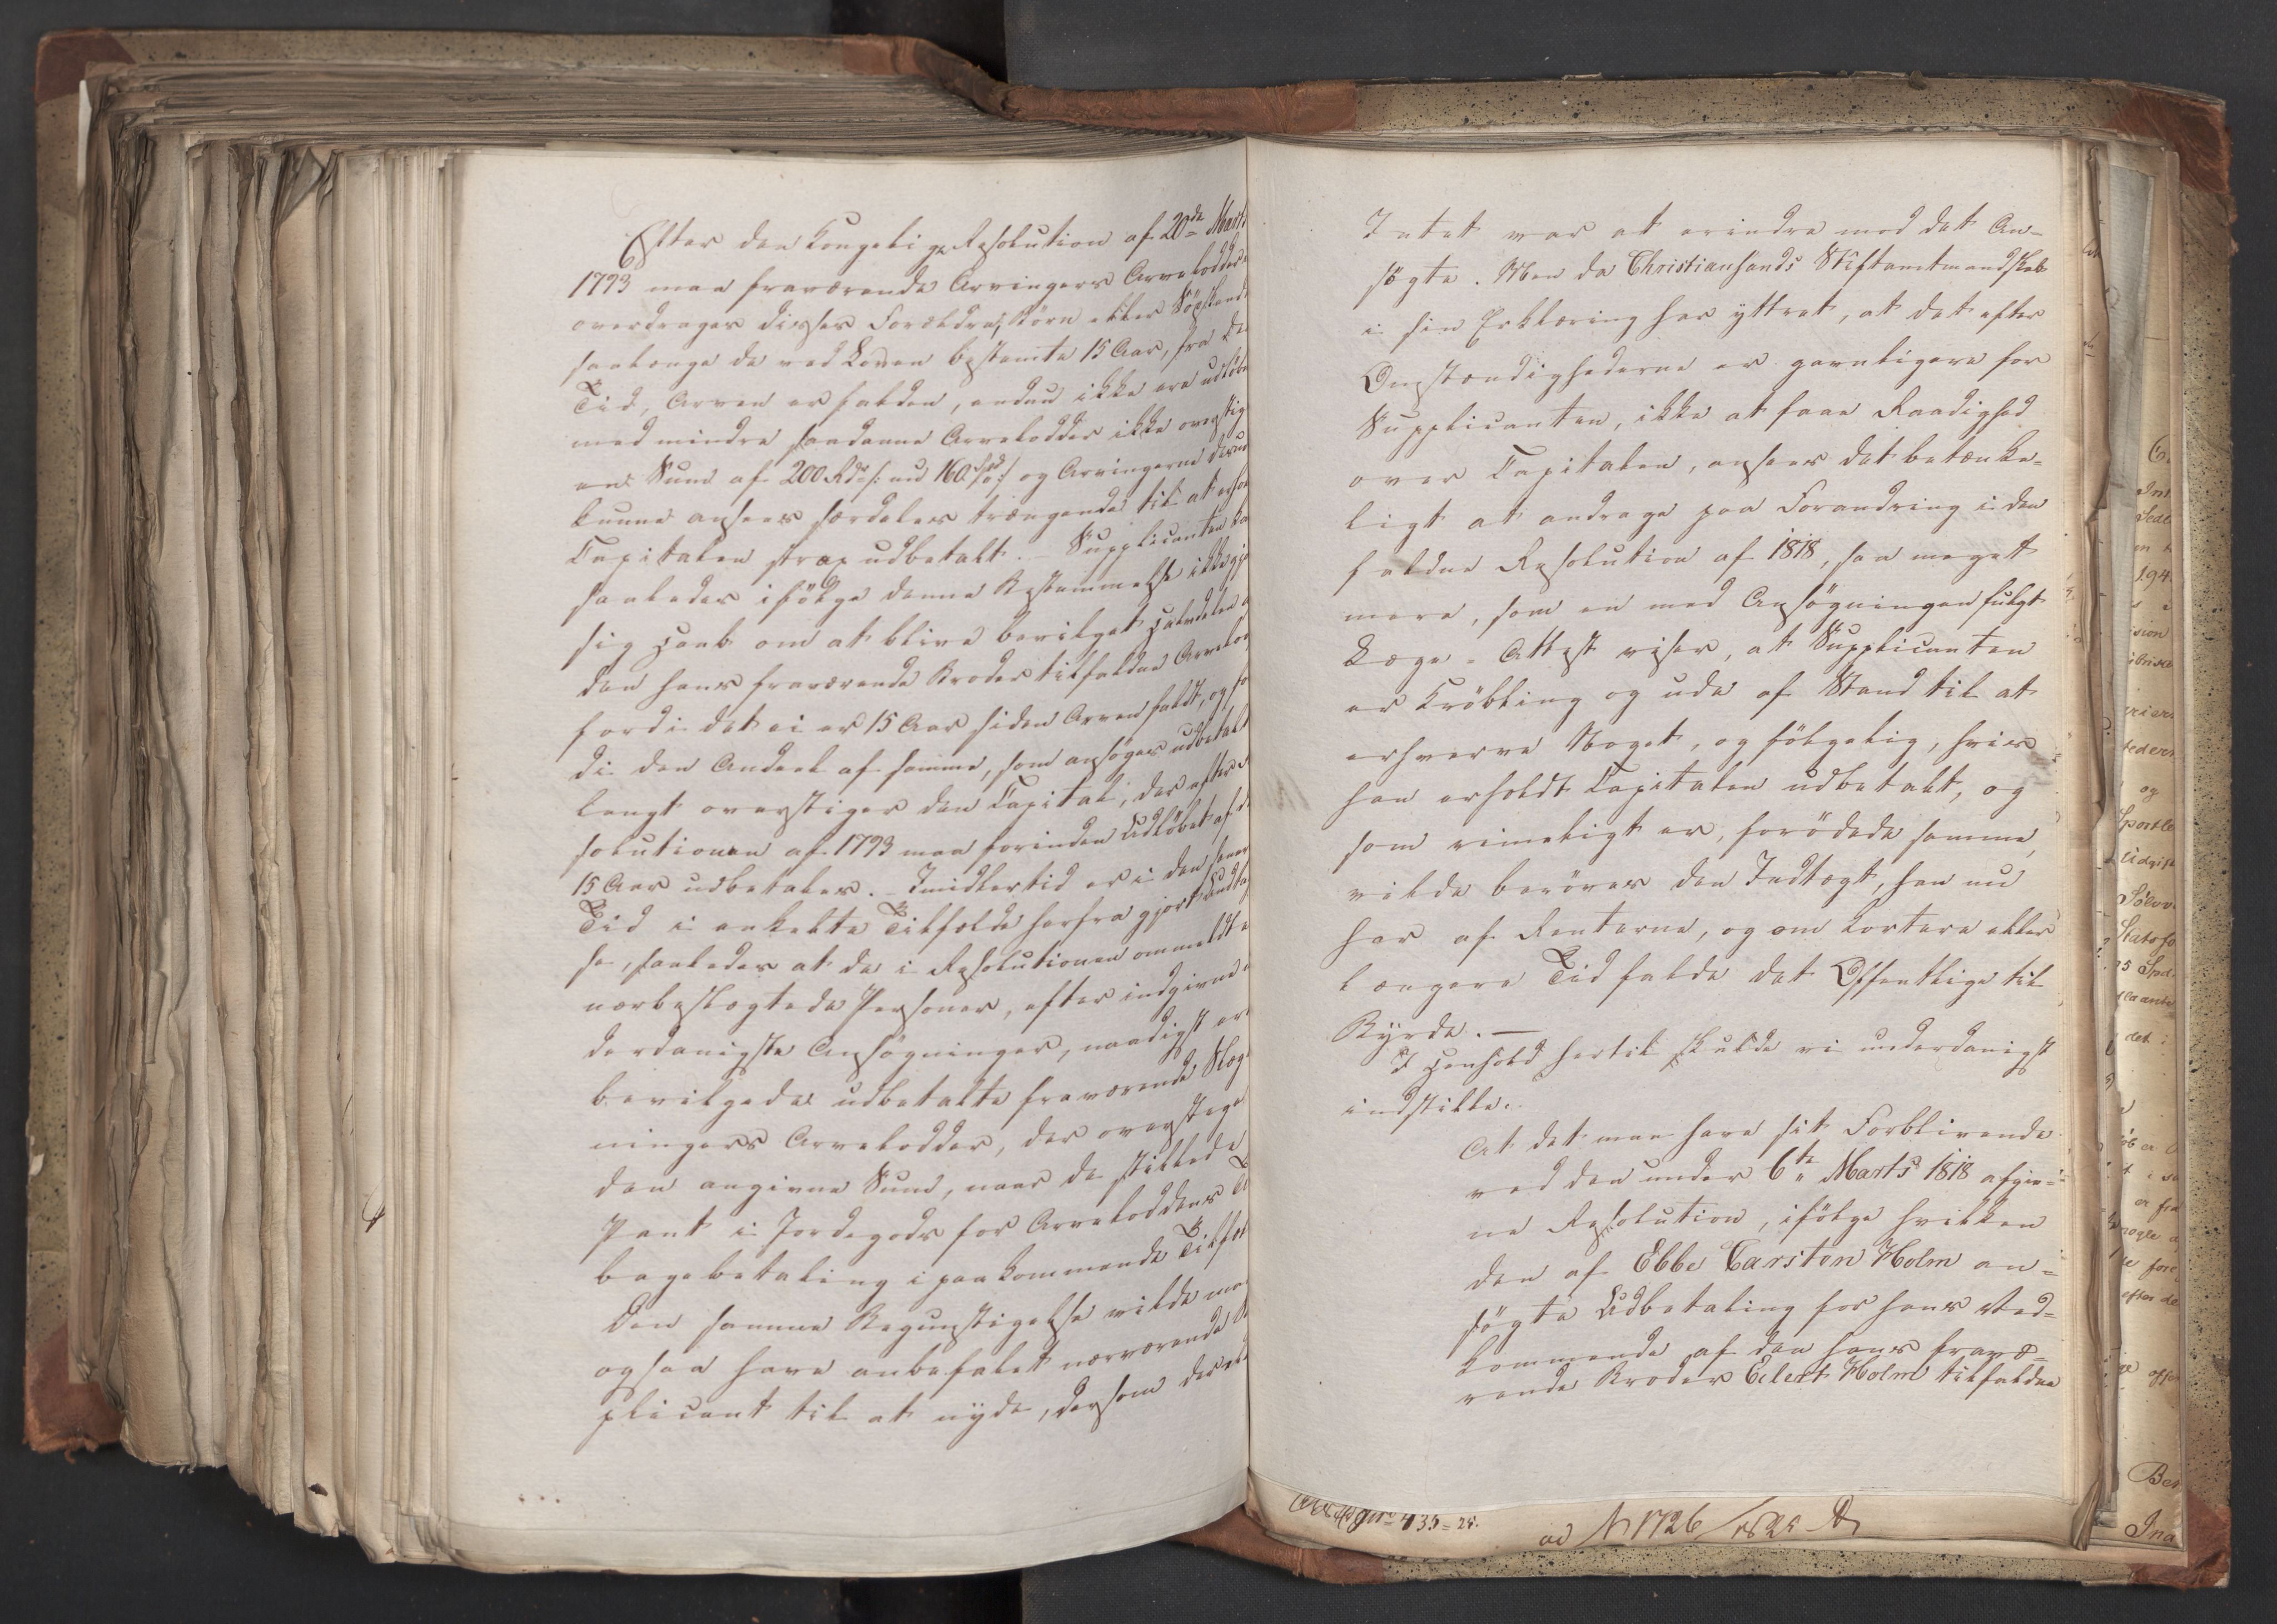 Efter den Kongelige Resolution af 20de Marts
1793 maa fraværende Arvingers Arvelodder
overdrages disses Forældre, Börn eller Södskende
saalænge de ved Loven bestemte 15 Aar, fra den
Tid, Arven er falden, endnu ikke ere udløbne
med mindre saadanne Arvelodder ikke overstige
en Sum af 200 Rdr /: nu 160 Spd :/ og Arvingerne derved
kunne ansees særdeles trængende til at erholde
Capitalen strax udbetalt. - Supplicanten kan
saaledes ifölge denne Bestemmelse ikke gjöre
sig Haab om at blive bevilget Halvdelen af
den hans fraværende Broder tilfaldne Arvelod
fordi det ei er 15 Aar siden Arven faldt, og for-
di den Andeel af samme, som ansöges udbetalt
langt overstiger den Capital, der efter Re-
solutionen af 1793 maa forinden Udlöbet af de
15 Aar udbetales. - Imidlertid er i den senere
Tid i enkelte Tilfælde herfra gjort Undta-
se, saaledes at de i Resolutionen ommeldte
nærbeslægtede Personer, efter indgivne
derdanigste Ansögninger, naadigst ere
bevilgede udbetalte fraværende Slægt-
ningers Arvelodder, der overstege
den angivne Sum, naar de stillede
Pant i Jordegods for Arveloddens Til-
bagebetaling i paakommende Tilfælde
Den samme Begunstigelse vilde man
ogsaa have anbefalet nærværende Sup-
plicant til at nyde, dersom der ellers
Intet var at erindre mod det An-
sögte. Men da Christiansands Stiftamtmandskab
i sin Erklæring har yttret, at det efter
Omstændighederne er gavnligere for
Supplicanten, ikke at faae Raadighed
over Capitalen, ansees det betænke-
ligt at andrage paa Forandring i den
faldne Resolution af 1818, saa meget
mere, som en med Ansögningen fulgt
Læge-Attest viser, at Supplicanten
er Kröbling og ude af Stand til at
erhverve Noget, og fölgelig, hvis
han erholdt Capitalen udbetalt, og
som rimeligt er, forödede samme,
vilde beröves den Indtægt, han nu
har af Renterne, og om kortere eller
længere Tid falde det Offentlige til
Byrde. —
I Henhold hertil skulde vi underdanigst
indstille:
At det maa have sit Forblivende
ved den under 6te Marts 1818 afgiv-
ne Resolution, ifölge hvilken
den af Ebbe Carsten Holm an-
sögte Udbetaling for hans Ved-
kommende af den hans fravæ-
rende Broder Eilert Holm tilfaldne
435=25.
ad N 1726/1825 D